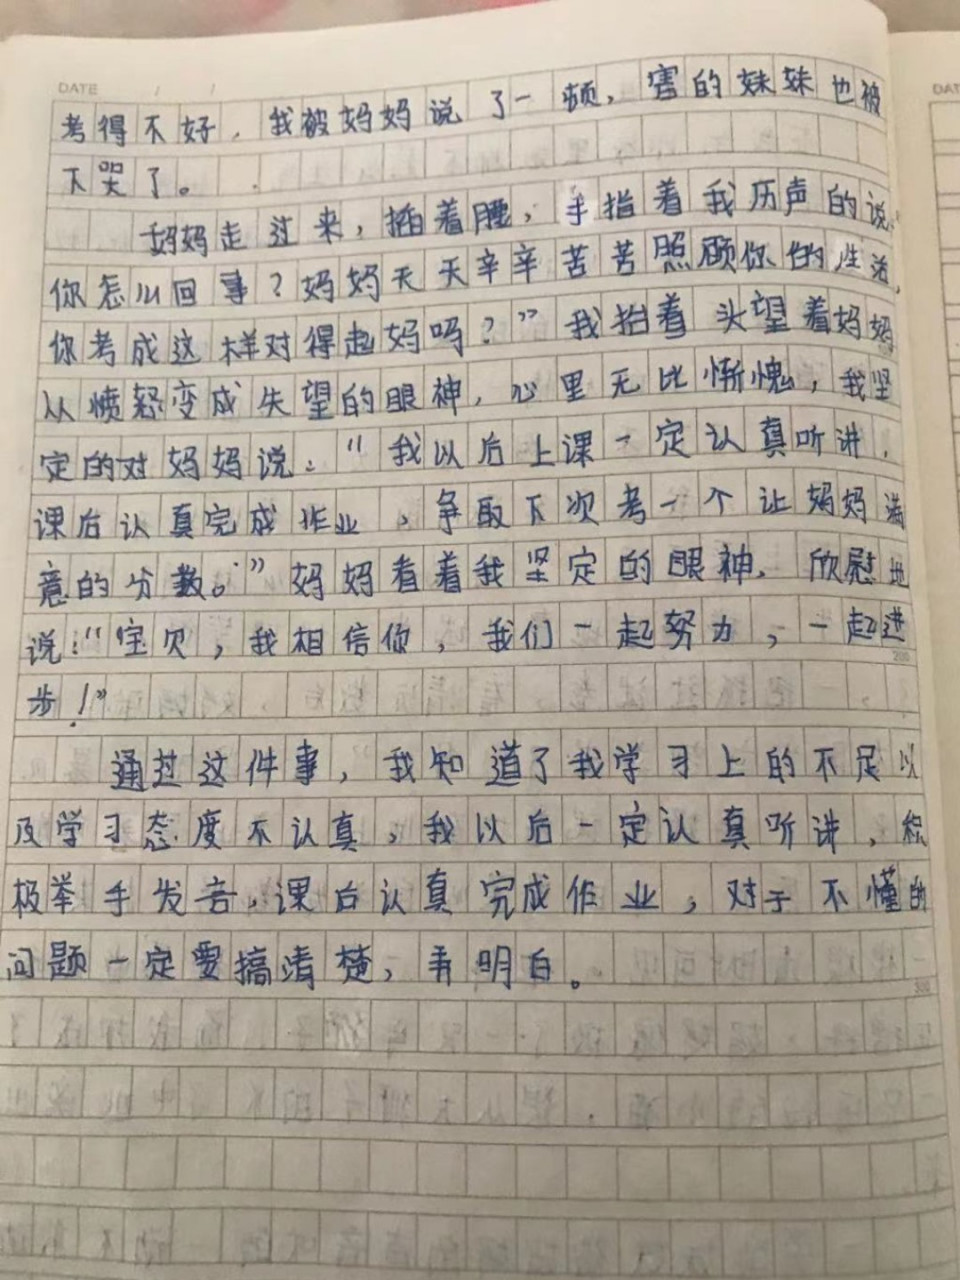 DATE / /
考得不好，我被妈妈说了一顿，害的妹妹也被
下哭了。
妈妈走过来，插着腰，手指着我历声的说："
你怎么回事？妈妈天天辛辛苦苦照顾你的生活，
你考成这样对得起妈吗？"我抬着头望着妈妈
从愤怒变成失望的眼神，心里无比惭愧，我坚
定的对妈妈说："我以后上课一定认真听讲，
课后认真完成作业，争取下次考一个让妈妈满
意的分数。"妈妈看着我坚定的眼神，欣慰地
说："宝贝，我相信你，我们一起努力，一起进
200
步！"
通过这件事，我知道了我学习上的不足以
及学习态度不认真，我以后一定认真听讲，积
极举手发言，课后认真完成作业，对于不懂的
问题一定要搞清楚，弄明白。
300